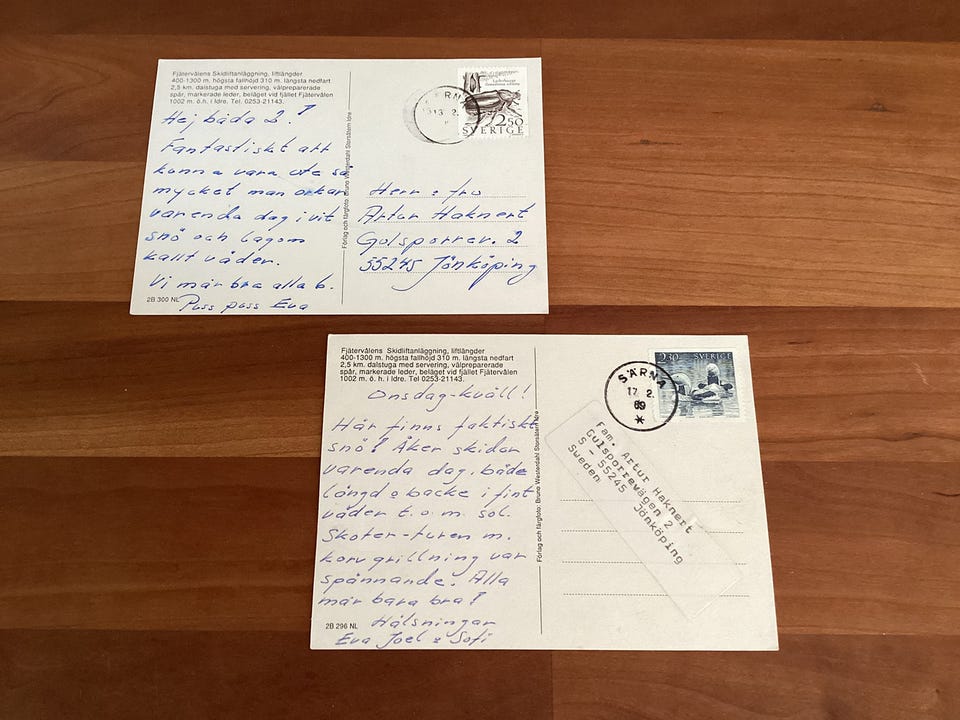 Fjätervålens Skidliftanläggning, liftlängder
400-1300 m. högsta fallhöjd 310 m. längsta nedfart
2,5 km. dalstuga med servering, välpreparerade
spår, markerade leder, beläget vid fjället Fjätervålen
1002 m. ö.h. i Idre. Tel. 0253-21143.
Hej båda 2!
Fantastiskt att
kunna vara ute så
mycket man orkar
varenda dag i vit
snö och lagom
kallt väder.
Vi mår bra alla 6.
Puss puss Eva
2B 300 NL
Förlag och färgfoto: Bruno Westerdahl Storsätern Idre
SÄRNA
13 2.
2.50
SVERIGE
Herr o fru
Artur Haknert
Gulsporrev. 2
55245 Jönköping
Fjätervålens Skidliftanläggning, liftlängder
400-1300 m. högsta fallhöjd 310 m. längsta nedfart
2,5 km. dalstuga med servering, välpreparerade
spår, markerade leder, beläget vid fjället Fjätervålen
1002 m. ö. h. i Idre. Tel 0253-21143.
Onsdag-kväll!
Här finns faktiskt
snö! Åker skidor
varenda dag, både
längd o backe i fint
väder t.o.m. sol.
Skoter-turen m.
korvgrillning var
spännande. Alla
mår bara bra!
Hälsningar
Eva Joel o Sofi
2B 296 NL
Förlag och färgfoto: Bruno Westerdahl Storsätern Idre
SÄRNA
17 2.
89
2.30 SVERIGE
Fam. Artur Haknert
Gulsporrevägen 2
S - 55245 Jönköping
Sweden